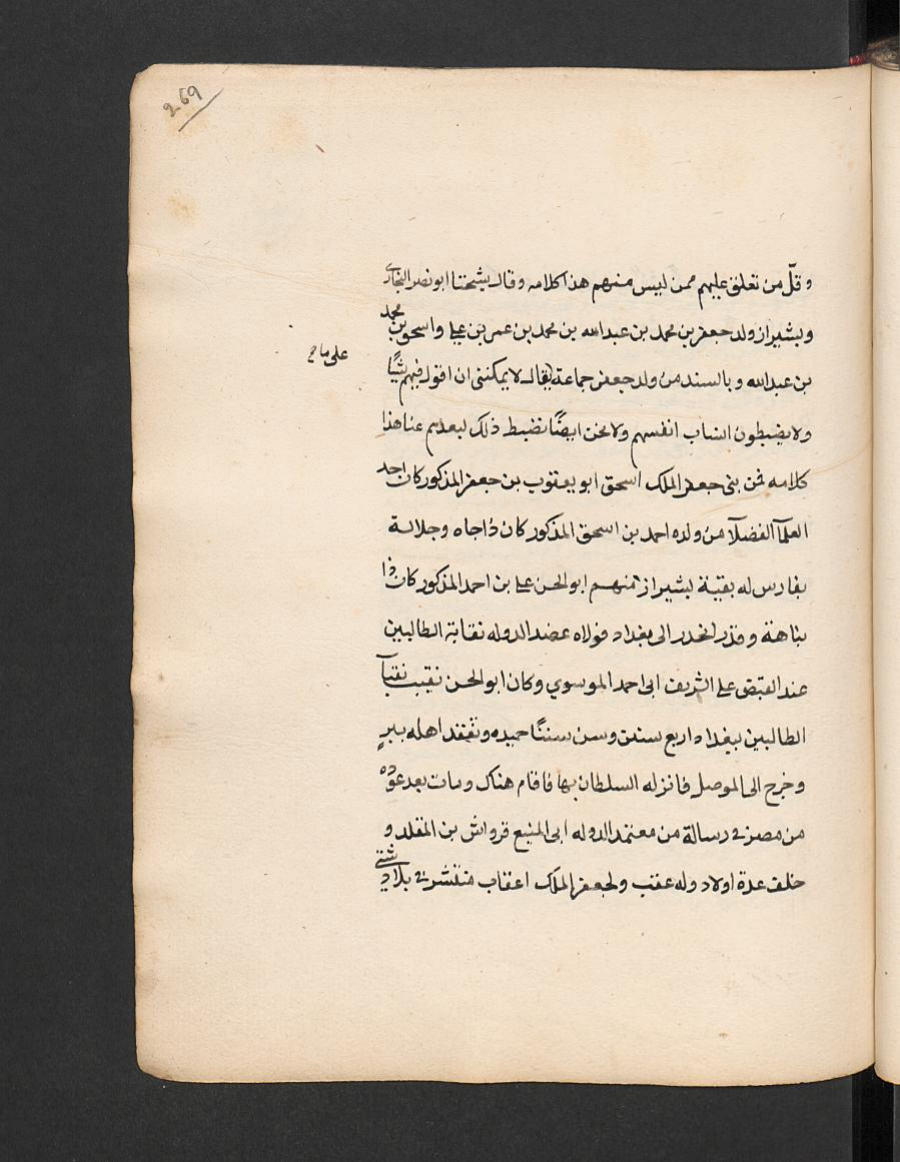 269
وقلّ من تعلق عليهم ممن ليس منهم هذا كلامه وقال شيخنا ابو نصر البخاري
وبشيراز ولد جعفر بن محمد بن عبد الله بن محمد بن عمر بن علي واسحق بن محمد
بن عبد الله وبالسند من ولد جعفر جماعة يقال لا يمكننى ان اقول فيهم شيًا
على
ولا يضبطون انساب انفسهم ولا نحن ايضًا نضبط ذلك لبعدهم عنا هذا
كلامه فمن بنى جعفر الملك اسحق ابو يعقوب بن جعفر المذكور كان احد
العلمآ الفضلآ من ولده احمد بن اسحق المذكور كان ذا جاه وجلالة
بفارس له بقية بشيراز منهم ابو الحسن علي بن احمد المذكور كان ذا
نباهة وقدر انحدر الى بغداد فولاه عضد الدوله نقابة الطالبين
عند القبض على الشريف ابى احمد الموسوي وكان ابو الحسن نقيب نقبآ
الطالبين ببغداد اربع سنين وسن سننًا حميده وتفقد اهله ببرٍ
وخرج الى الموصل فانزله السلطان بها فاقام هناك ومات بعد عوده
من مصر في رسالة من معتمد الدوله ابى المنيع قرواش بن المقلد و
خلف عدة اولاد وله عقب ولجعفر الملك اعقاب منتشرة في بلاد شتى